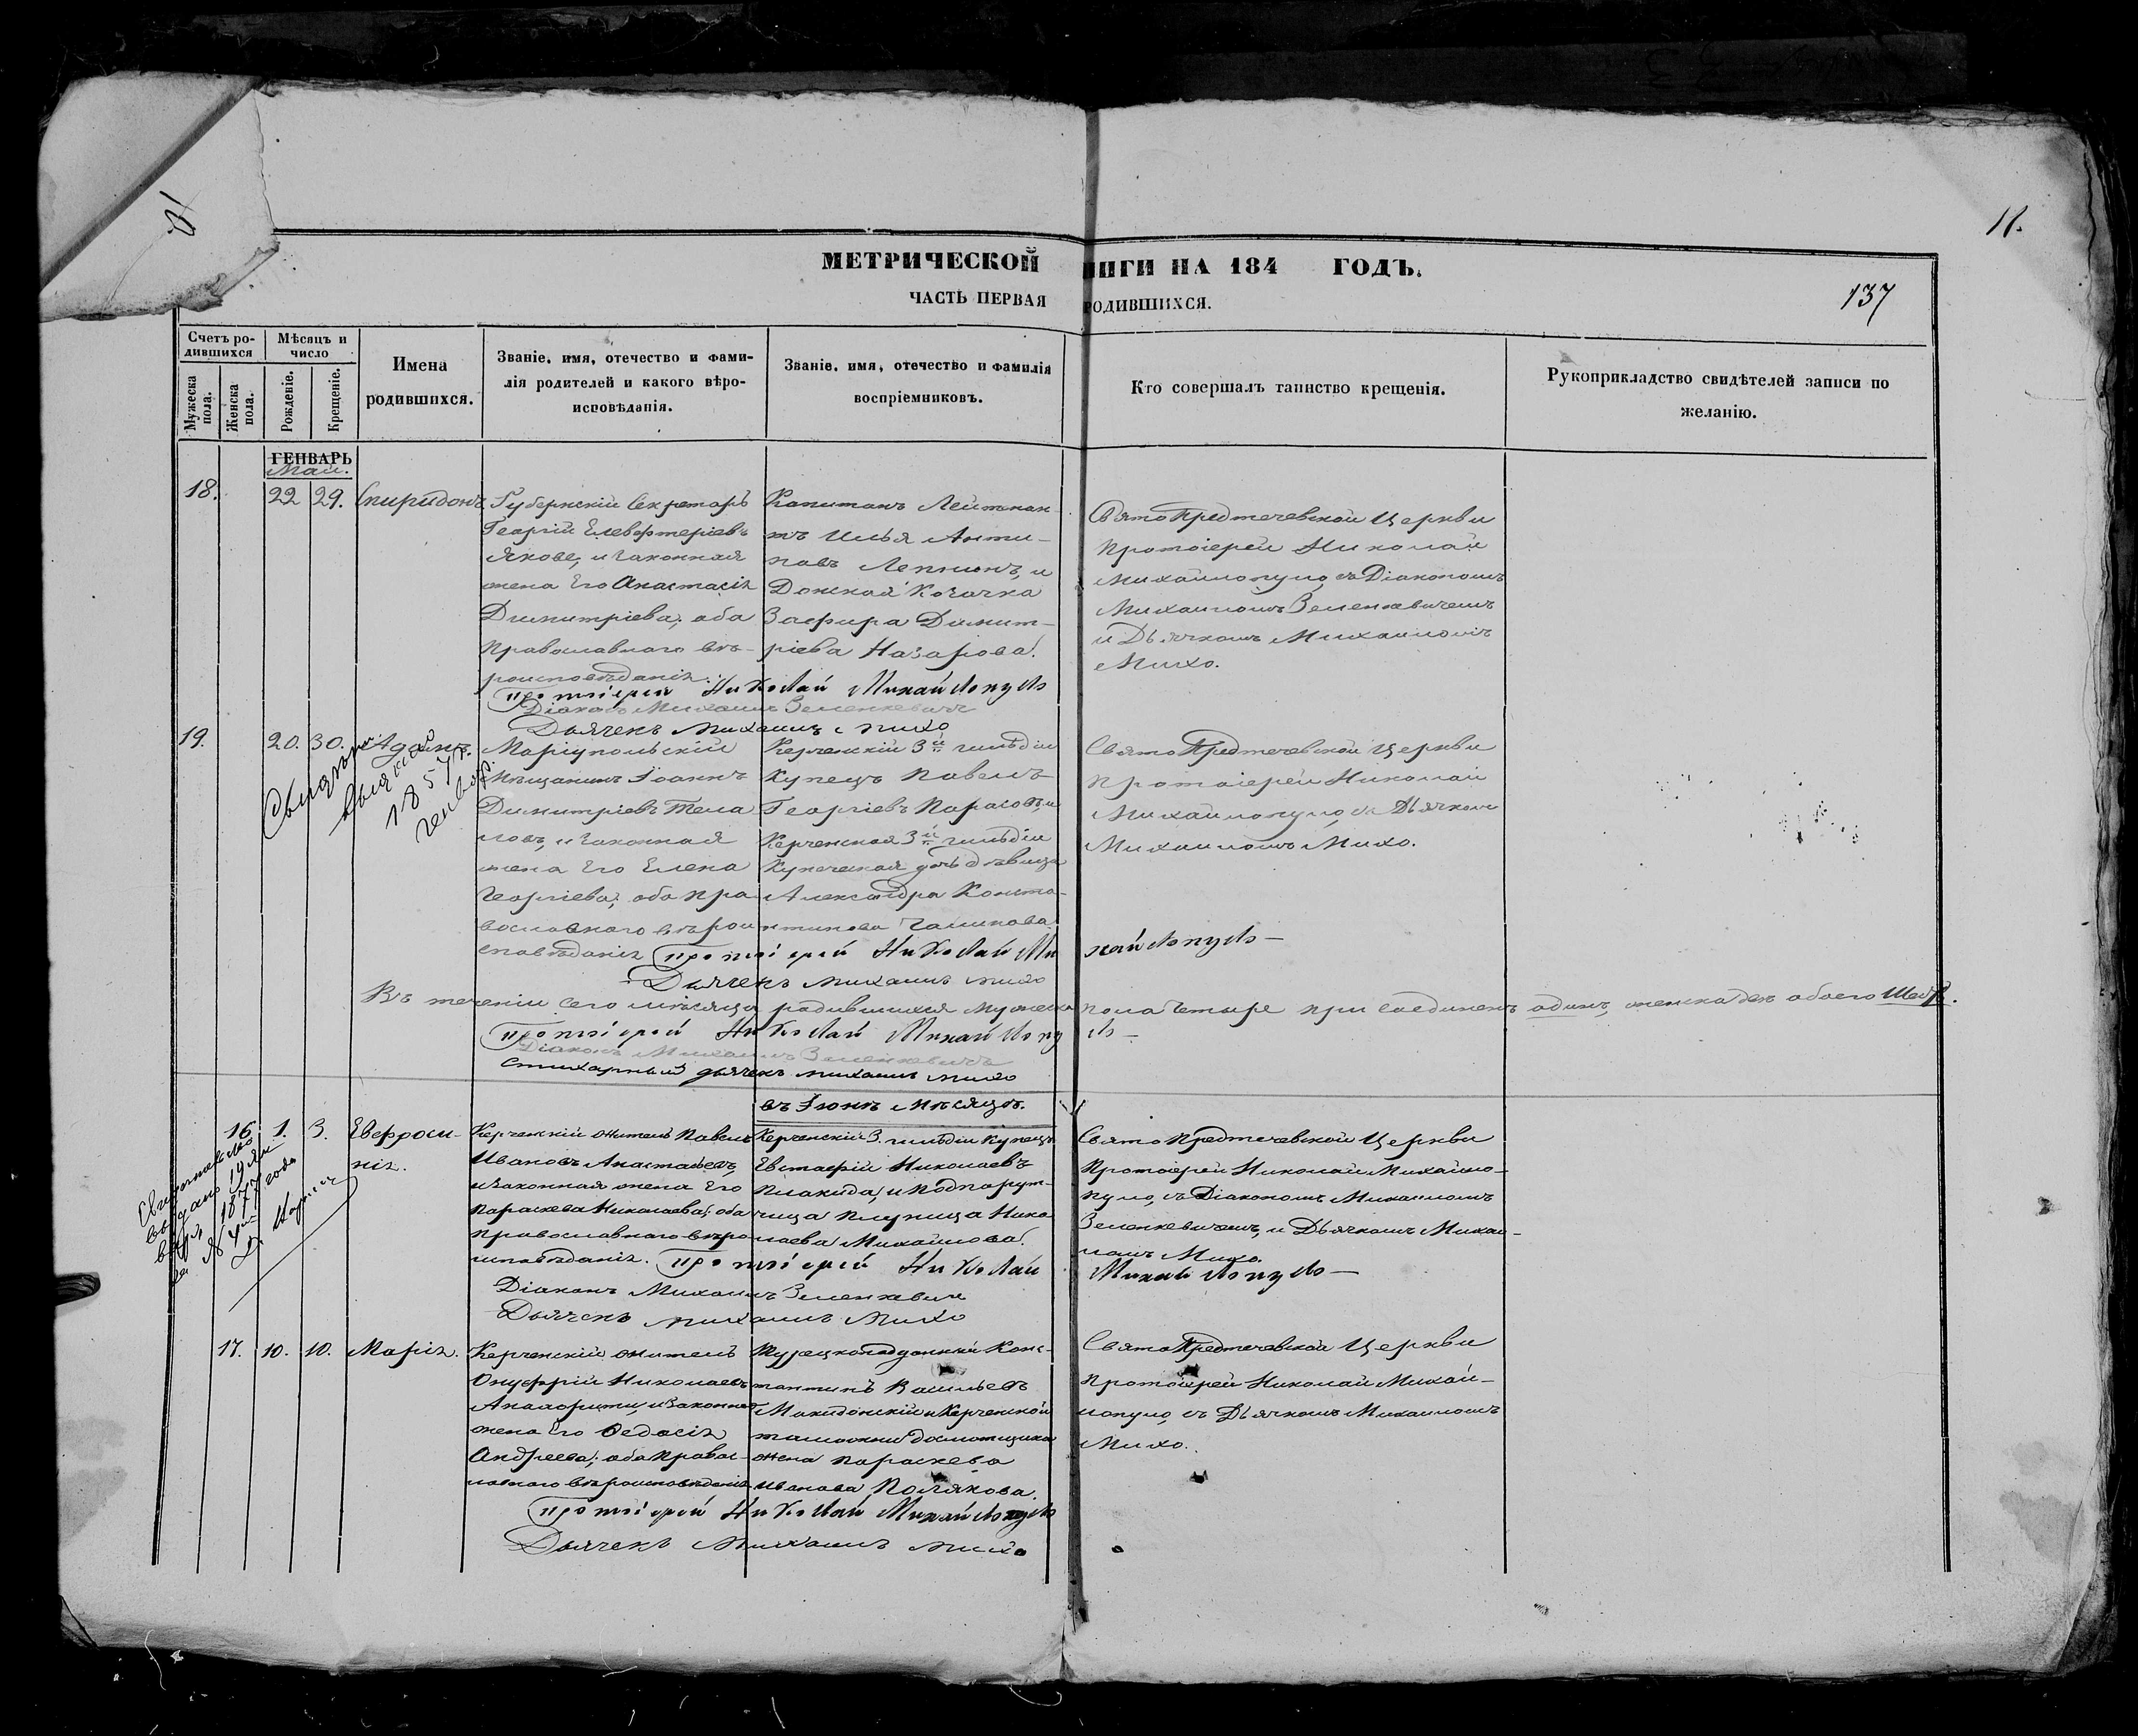 11.
МЕТРИЧЕСКОЙ НИГИ НА 184 ГОДЪ.
ЧАСТЬ ПЕРВАЯ РОДИВШИХСЯ.
137
Счетъ ро-
дившихся
Мужеска пола.
Женска пола.
Мѣсяцъ и
число
Рожденіе.
Крещеніе.
Имена
родившихся.
Званіе, имя, отечество и фами-
лія родителей и какого вѣро-
исповѣданія.
Званіе, имя, отечество и фамилія
воспріемниковъ.
Кто совершалъ таинство крещенія.
Рукоприкладство свидѣтелей записи по
желанію.
ГЕНВАРЬ
Май.
18.
22
29.
Спиридонъ
Губернскій Секретарь
Георгій Елевферіевъ
Якове, и законная
жена Его Анастасія
Димитріева, оба
Православнаго вѣ-
роисповѣданія.
Капитанъ Лейтенан-
тъ Илья Анти-
повъ и
Донская Козачка
Зафира Димит-
ріева Назарова.
СвятоПредтечевской Церкви
Протоіерей Николай
Михайлопуло, съ Діакономъ
Михаиломъ Зеленкевичемъ
и Дьячкомъ Михаиломъ
Михо.
Протоіерей Николай Михайлопуло
Діаконъ Михаилъ Зеленкевичъ
Дьячекъ Михаилъ Михо
19.
20.
30.
Адамъ.
1857 г.
генвар.
Маріупольскій
Мѣщанинъ Іоаннъ
Димитріевъ Тела
ловъ, и законная
жена Его Елена
Георгіева, оба пра-
вославнаго вѣрои
сповѣданія
Керченскій 3й гильдіи
Купецъ Павелъ
Георгіевъ и
Керченская 3й гильдіи
Купеческая дочь дѣвица
Александра Конста-
нтинова
СвятоПредтечевской Церкви
Протоіерей Николай
Михайлопуло, съ Дьячкомъ
Михаиломъ Михо.
Протоіерей Николай Михайлопуло —
Дьячекъ Михаилъ Михо
Въ теченіи сего мѣсяца родившихся мужеска пола Четыре присоединенъ одинъ, женска обоего Шесть.
Протоіерей Николай Михайлопуло —
Діаконъ Михаилъ Зеленкевичъ
Стихарный дьячекъ Михаилъ Михо
въ Іюнѣ Мѣсяцѣ.
16.
1.
3.
Евфроси-
нія.
Свидѣтельство
выдано 19
1877 года
за №
Керченскій житель Павелъ
Ивановъ Анастасьевъ,
и законная жена Его
Параскева Николаева, оба
Православнаго вѣро
исповѣданія.
Керченскій 3. гильдіи Купецъ
Евстафій Николаевъ
Плакида, и Подпорут-
чица Нико
лаева Михайлова.
Свято Предтечевской Церкви
Протоіерей Николай Михайло-
пуло, съ Діакономъ Михаиломъ
Зеленкевичемъ, и Дьячкомъ Михаи-
ломъ Михо.
Протоіерей Николай Михайлопуло —
Діаконъ Михаилъ Зеленкевичъ
Дьячекъ Михаилъ Михо
17.
10.
10.
Марія.
Керченскій житель
Онуфрій Николаевъ
и законная
жена Его Федосія
Андреева, оба Правос-
лавнаго вѣроисповѣданія
Турецкоподданный Конс-
тантинъ Васильевъ
Македонскій и Керченской
таможни досмотщика
жена Параскева
Иванова Полякова.
СвятоПредтечевской Церкви
Протоіерей Николай Михай-
лопуло, съ Дьячкомъ Михаиломъ
Михо.
Протоіерей Николай Михайлопуло
Дьячекъ Михаилъ Михо